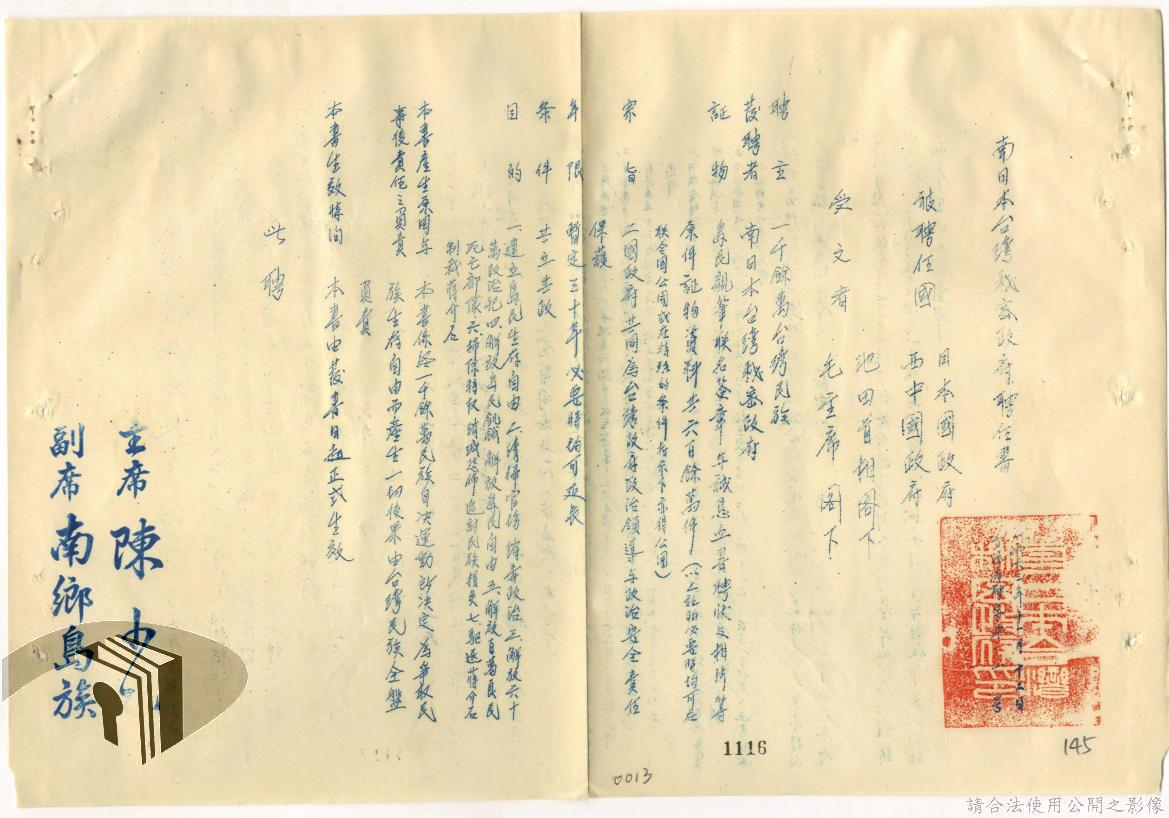 南日本台湾秘密政府聘任書
被聘任國 日本國政府
西中國政府
池田首相閣下
受文者 毛主席 閣下
聘主 一千餘萬台湾民族
發聘者 南日本台湾秘密政府
証物 島民親筆联名簽章年誠恳血書聘状及相片等
原件証物資料共六百餘萬件（以上証物必要時均可在
联合国公開或在特殊的条件指示下亦得公開）
宗旨 二國政府共同為台湾政府政治領導与政治安全責任
保護
年限 暫定三十年必要時均可延長
条件 共立共政
目的 一、建立島民生存自由 二、清掃官僚 獨專政治 三、解放六十
萬政治犯 四、解放島民飢餓 解放島民自由 五、解放百萬良民
死亡部隊 六、掃除特权 消滅恐怖 追討民族損失 七、驅逐蔣介石
制裁蔣介石
本書產生原因与 本書係经一千餘萬民族自决運動所决定為争取民
事後責任之負責 族生存自由而產生一切後果由台湾民族全盤
負責
本書生效時間 本書由發書日起正式生效
此聘
主席 陳
副席 南鄉島族
1116
145
0013
請合法使用公開之影像